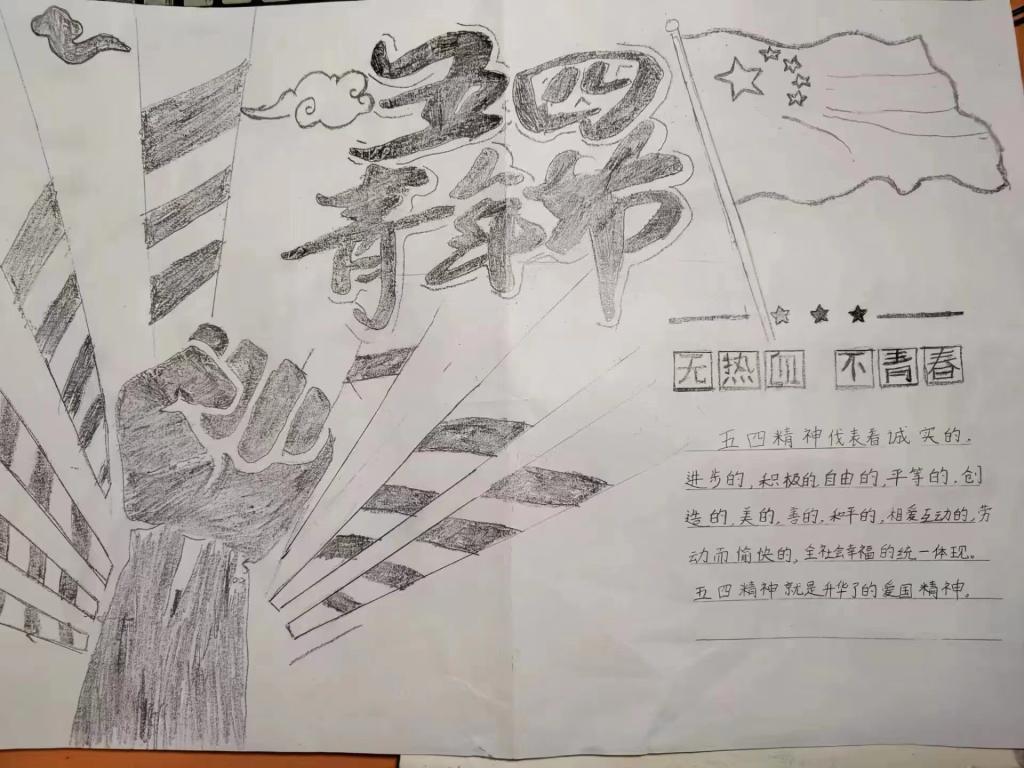 五四
青年节
无热血 不青春
五四精神代表着诚实的,
进步的,积极的自由的,平等的,创
造的,美的,善的,和平的,相爱互动的,劳
动而愉快的,全社会幸福的统一体现。
五四精神就是升华了的爱国精神。